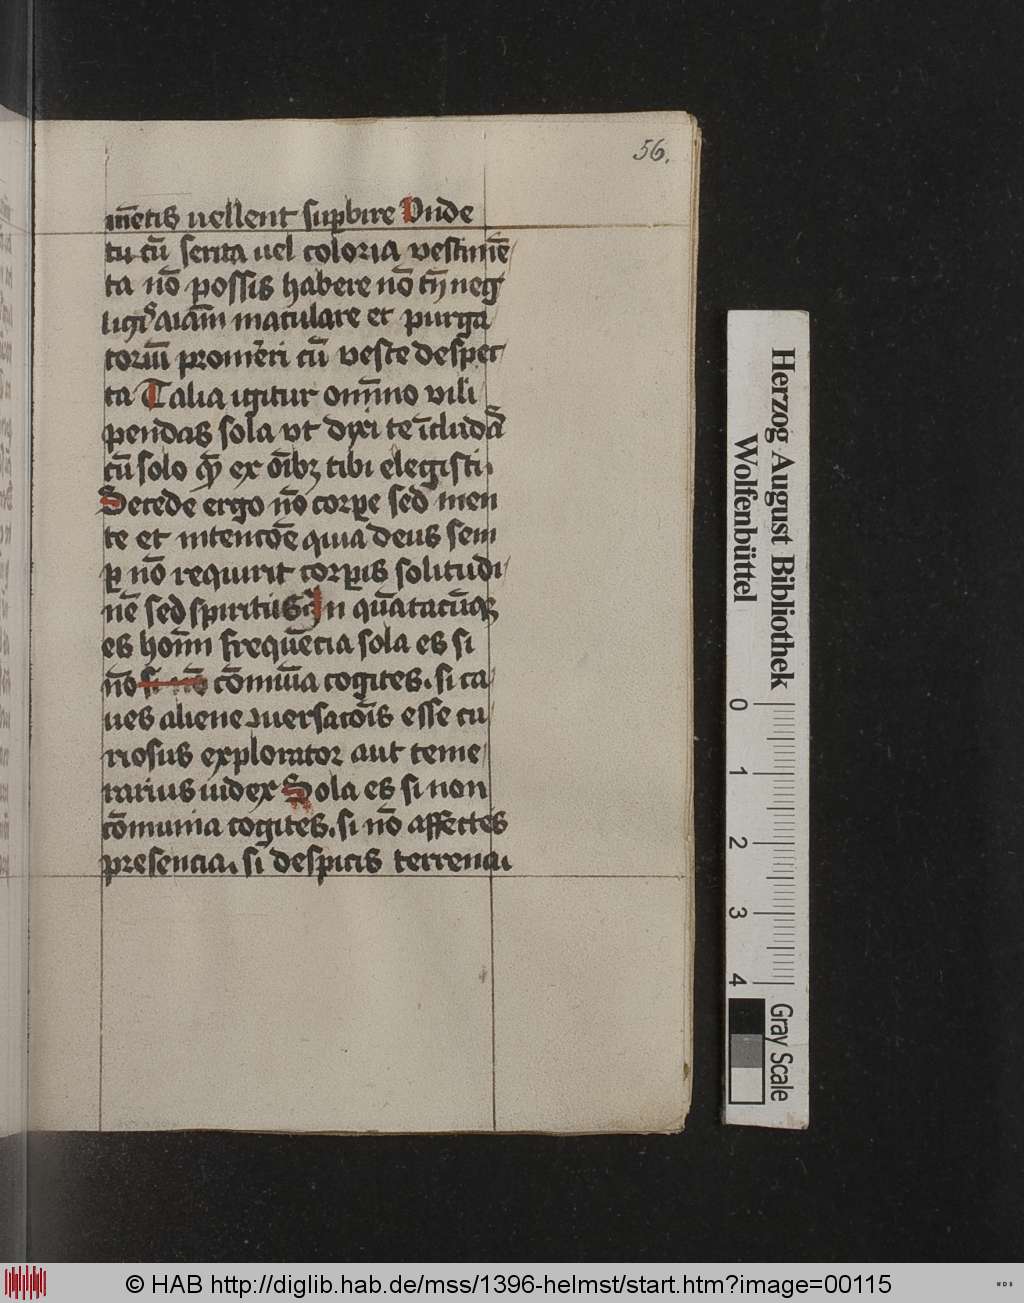 56.
mẽtis uellent suꝑbire Vnde
tu cũ serica uel coloria vestimẽ
ta nõ possis habere nõ neg
ligas aĩam maculare et purga
toriũ promeri cũ veste despec
ta Talia igitur omĩno vili
pendas sola vt dyxi te ĩcludã
cũ solo ex õibꝫ tibi elegisti.
Secede ergo nõ corꝑe sed men
te et intencõe quia deus sem
ꝑ nõ requirit corꝑis solitudi
nẽ sed spiritus In
es homĩ frequẽcia sola es si
nõ si nõ cõmuĩa cogites. si ca
ues aliene ɔuersacõis esse cu
riosus explorator aut teme
rarius iudex Sola es si non
cõmunia cogites. si nõ affectes
presencia. si despicis terrena.
Herzog August Bibliothek
Wolfenbüttel
0 1 2 3 4
Gray Scale
© HAB http://diglib.hab.de/mss/1396-helmst/start.htm?image=00115